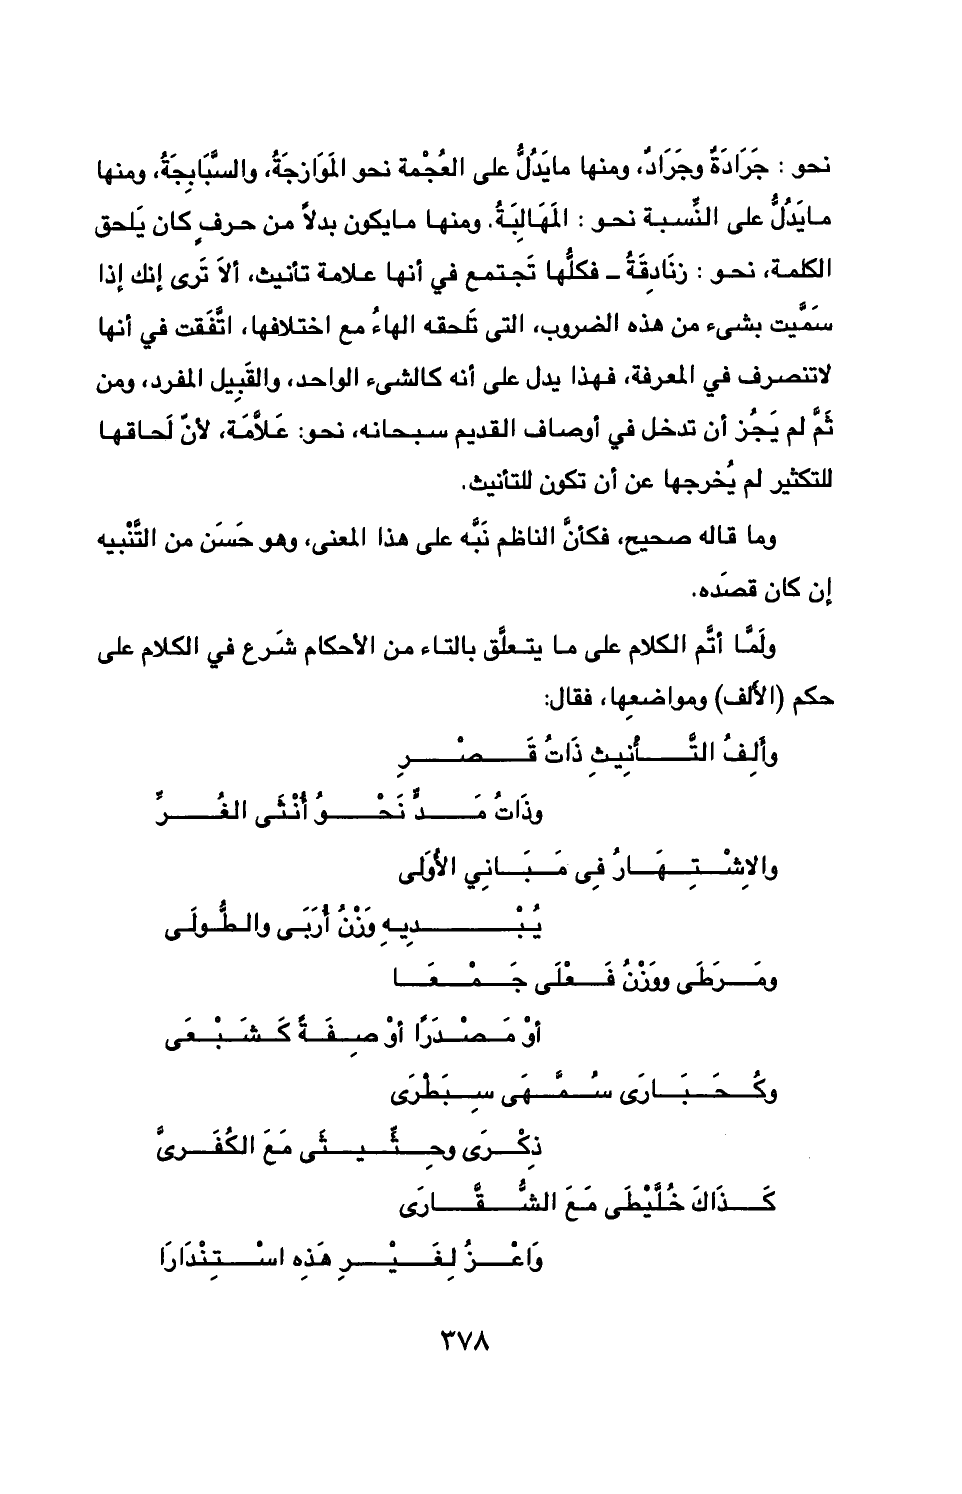 نحو : جَرَادَةٌ وجَرَادٌ، ومنها مايَدُلُّ على العُجْمة نحو المَوَازِجَةُ، والسَّبَابِجَةُ، ومنها
مايَدُلُّ على النِّسبة نحو : المَهَالِبَةُ. ومنها مايكون بدلاً من حرفٍ كان يَلحق
الكلمة، نحو : زنَادِقَةُ ـ فكلُّها تَجتمع في أنها علامة تأنيث، ألاَ تَرى إنك إذا
سمَّيت بشىء من هذه الضروب، التى تَلحقه الهاءُ مع اختلافها، اتَّفَقت في أنها
لاتنصرف في المعرفة، فهذا يدل على أنه كالشىء الواحد، والقَبِيل المفرد، ومن
ثَمَّ لم يَجُز أن تدخل في أوصاف القديم سبحانه، نحو: عَلاَّمَة، لأنّ لَحاقها
للتكثير لم يُخرجها عن أن تكون للتأنيث.
وما قاله صحيح، فكأنَّ الناظم نَبَّه على هذا المعنى، وهو حَسَن من التَّنْبيه
إن كان قصَده.
ولَمَّا أتَّم الكلام على ما يتعلَّق بالتاء من الأحكام شَرع في الكلام على
حكم (الأَلف) ومواضعِها، فقال:
وأَلِفُ التَّـأنِيثِ ذَاتُ قَـصْـرِ
وذَاتُ مَـدٍّ نَحْـوُ أُنْثَى الغُـرِّ
والاِشْـتِـهَـارُ فِى مَـبَـانِي الأُوَلَى
يُبْـدِيهِ وَزْنُ أُرَبَى والطُّولَى
ومَـرَطَى ووَزْنُ فَـعْلَى جَـمْـعَـا
أوْ مَـصْـدَرًا أوْ صِـفَـةً كَـشَـبْـعَى
وكُـحَـبَـارَى سُـمَّـهَى سِـبَطْرَى
ذِكْـرَى وحِـثِّـيـثَى مَعَ الكُفَـرىَّ
كَـذَاكَ خُلَّيْطَى مَعَ الشُّـقَّـارَى
وَاعْـزُ لِغَـيْـرِ هَذِه اسْـتِنْدَارَا
٣٧٨